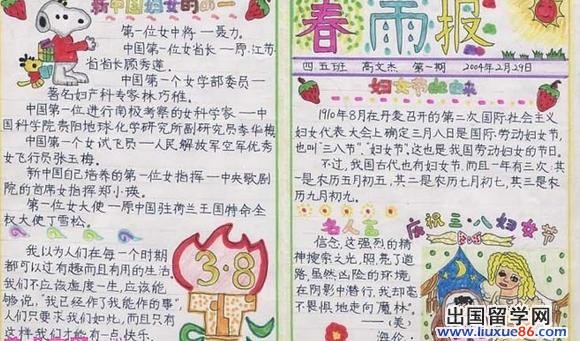 新中国妇女的第一
第一位女中将——聂力。
中国第一位女省长——原江苏
省省长顾秀莲。
中国第一个女学部委员——
著名妇产科专家林巧稚。
中国第一位进行南极考察的女科学家——中
国科学院贵阳地球化学研究所副研究员李华梅
中国第一个女试飞员——人民解放军空军优秀
女飞行员张玉梅。
新中国自己培养的第一位女指挥——中央歌剧
院的首席女指挥郑小瑛。
第一位女大使——原中国驻荷兰王国特命全
权大使丁雪松。
我以为人们在每一个时期
都可以过有趣而且有用的生活。
我们不应该虚度一生,应该能
够说,"我已经作了我能作的事"，
人们只要求我们如此,而且只有
这样我们才能有一点快乐。
3·8
春雨报
四.五班 高文杰 第一期 2004年2月29日
妇女节的由来
1910年8月在丹麦召开的第二次国际社会主义
妇女代表大会上确定三月八日是国际劳动妇女节,
也叫"三八节"、"妇女节"。这也是我国劳动妇女的节日。
不过,我国古代也有妇女节,而且一年有三次:其
一是农历五月初五,其二是农历七月初七,其三是农
历九月初九。
名人言
信念,这强烈的精
神搜索之光,照亮了道
路,虽然凶险的环境
在阴影中潜行,我却毫
不畏惧地走向魔林。
——(美)
海伦·
庆祝三·八妇女节
出国留学网
www.liuxue86.com